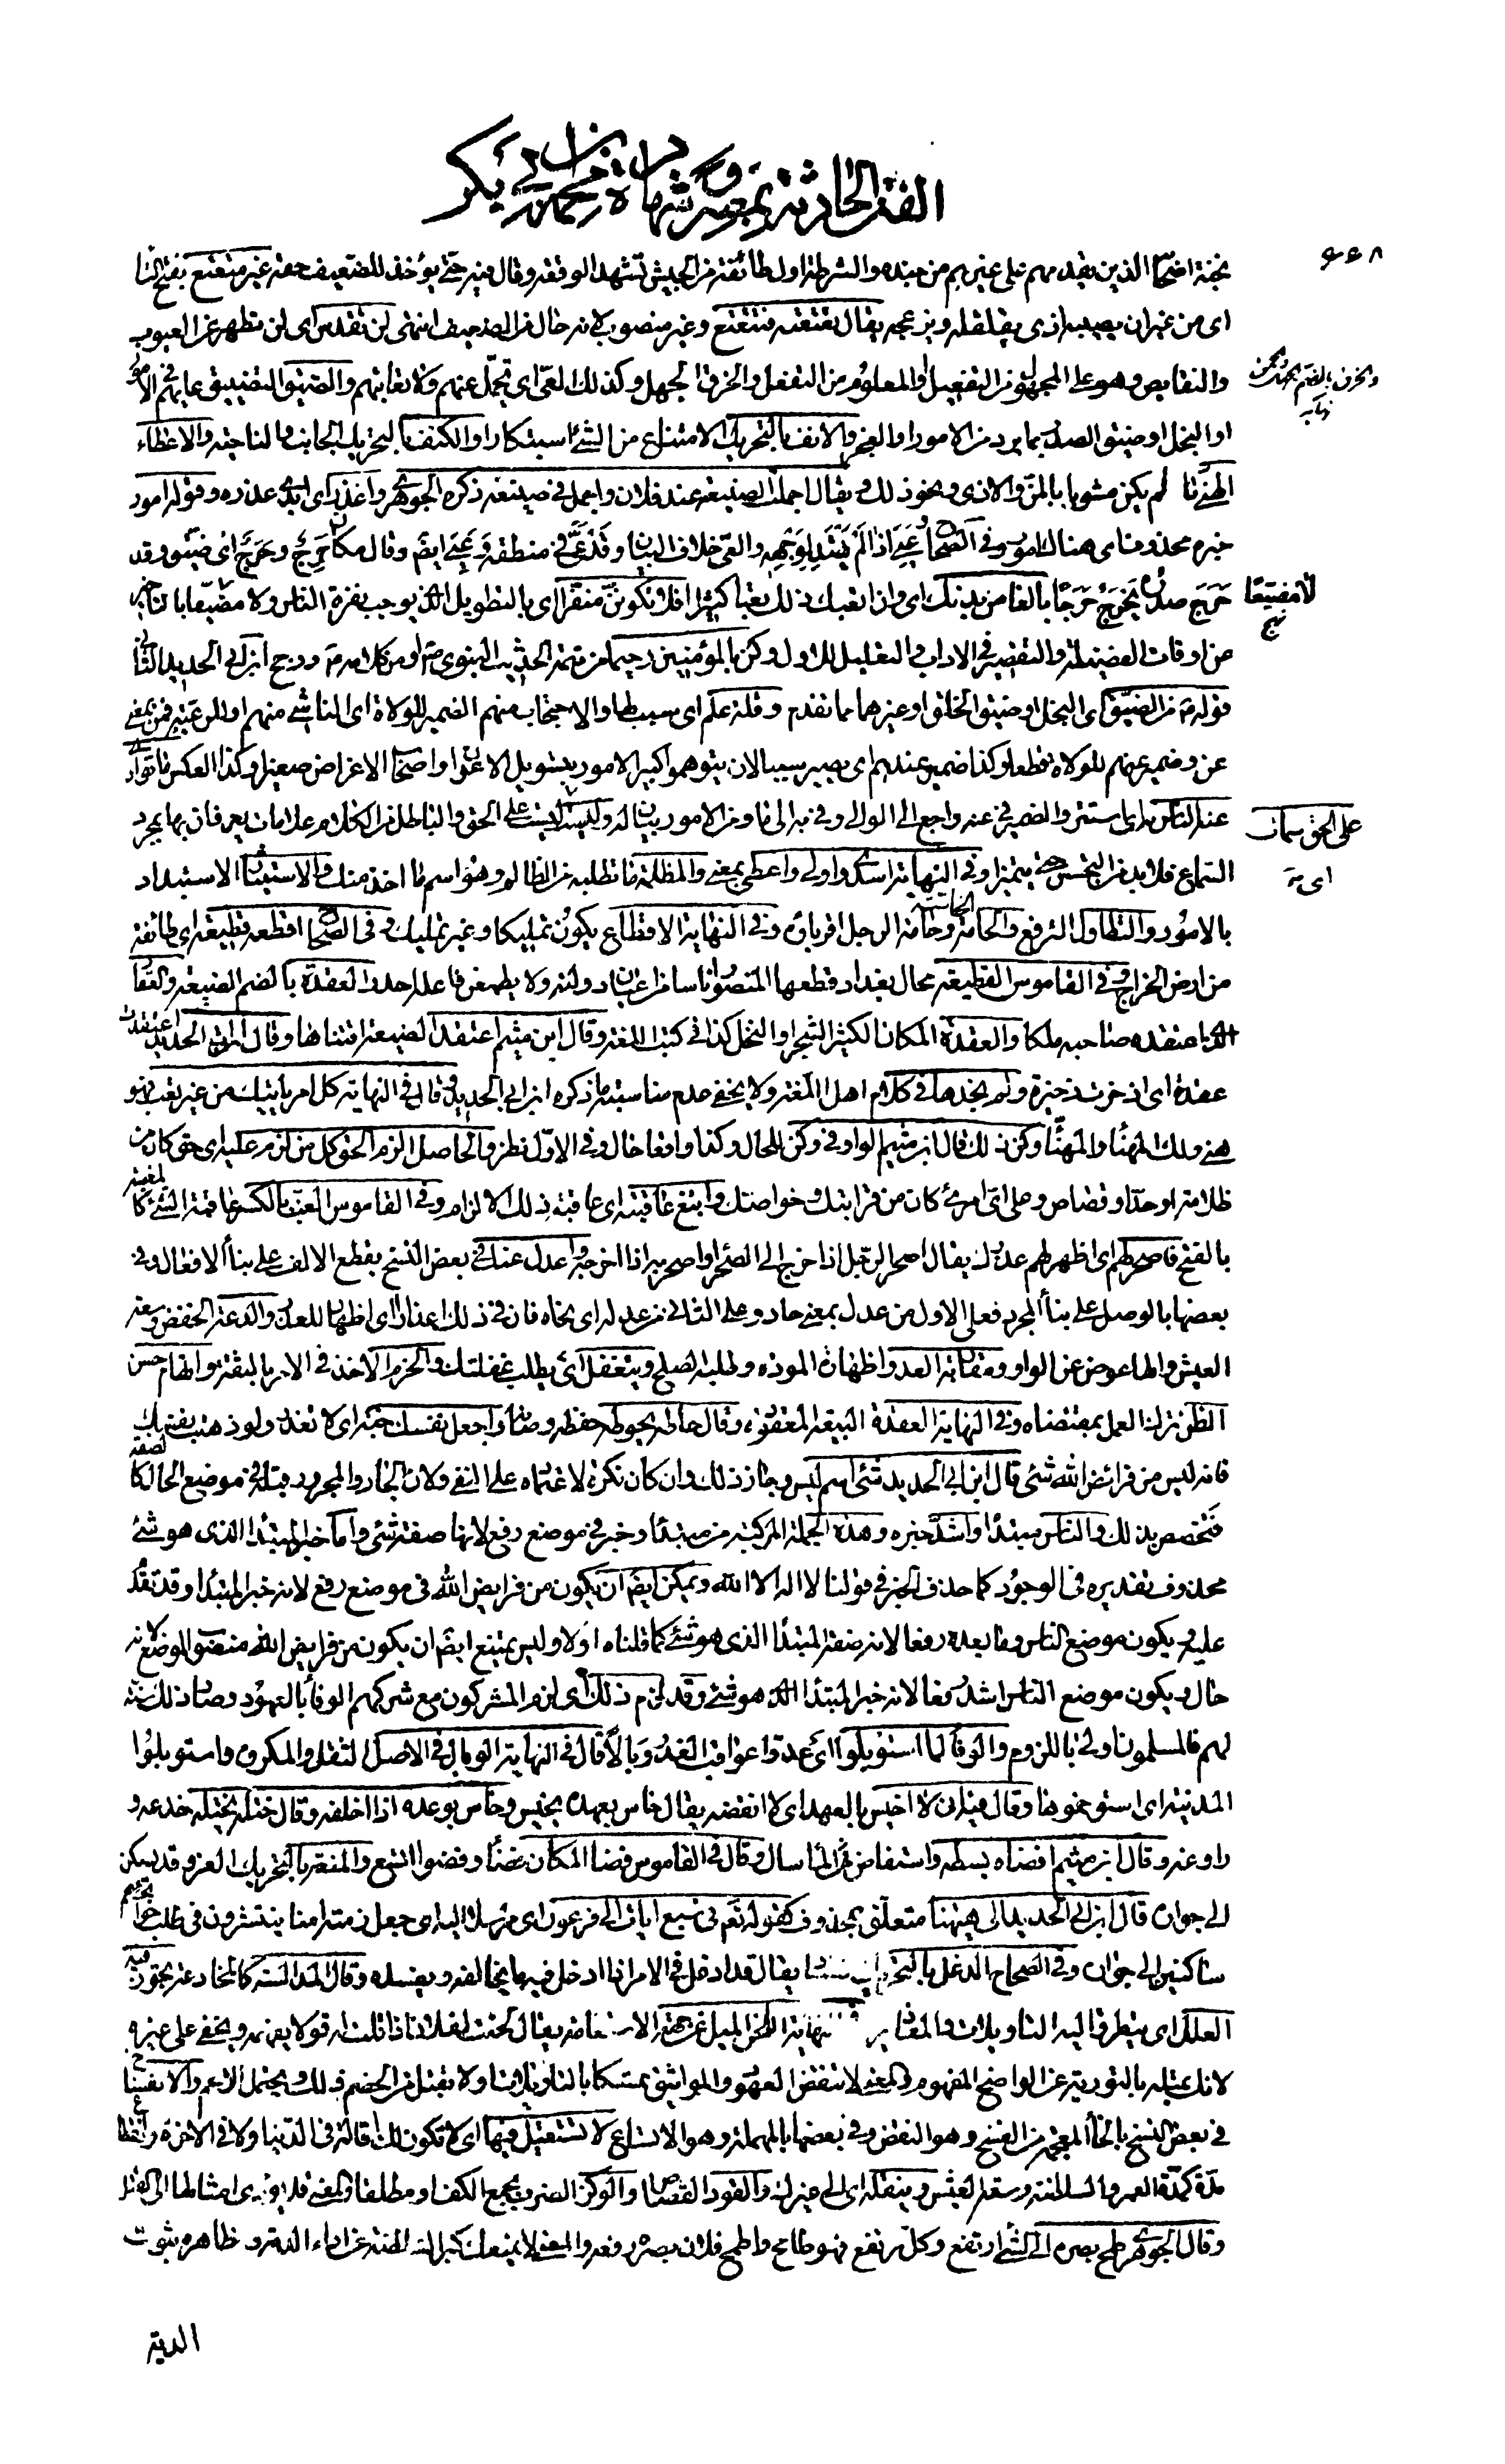 الفتن الحادثة بمصر وشهادة محمد بن أبي بكر
٦٤٨
بخبة اصحابه الذين يقدمهم على غيرهم من جنده والشرطة اول طائفة من الجيش تشهد الوقعة وقال فيه حتى يؤخذ للضعيف حقه غير متعتع بفتح التا
اى من غير ان يصيبه اذى يقلقله ويزعجه يقال تعتعه فتتعتع وغير منصوب لانه حال من الضعيف انتهى لن تقدس اى لن تطهر عن العيوب
والنقايص وهو على المجهول من التفعيل والمعلوم من التفعل والخرق الجهل وكذلك العى اى تحمل عنهم ولا تعاتبهم والضيق التضييق عليهم فى الامور
والخرق بالضم الجهل والحمق نهاية
او البخل او ضيق الصدر بما يرد من الامور او العجز والانف بالتحريك الامتناع من الشئ استكبارا والكنف بالتحريك الجانب والناحية والاعطاء
الهنئ ما لم يكن مشوبا بالمن والاذى ونحو ذلك ويقال اجملت الصنيعة عند فلان واجمل فى صنيعه ذكره الجوهرى واعذر اى ابدى عذره وقوله امور
خبره محذوف اى هناك امور وفى الصحاح عيى اذا لم يهتد لوجهه والعى خلاف البيان وقد عى فى منطقه وعيى ايضا وقال مكان حرج وحرج اى ضيق وقد
حرج صدره يحرج حرجا بالغا من بدنك اى وان اتعبك ذلك تعبا كثيرا فلا تكونن منفرا اى بالتطويل الذى يوجب نفرة الناس ولا مضيعا بالتاخير
لا مضيعا نهج
من اوقات الفضيلة والتقصير فى الاداب والتعليل للاول وكن بالمؤمنين رحيما من تتمة الحديث النبوى ص او من كلامه ع ورجح ابن ابى الحديد الثانى
قوله ع من الضيق اى البخل او ضيق الخلق او غيرهما مما تقدم وقلة علم اى سبب لها والاحتجاب منهم الضمير للولاة اى الناشئ منهم او للرعية فمن بمعنى
عن وضمير عنهم للولاة قطعا وكذا ضمير عندهم اى يصير سببا لان يتوهموا كبير الامور بتسويل الاعوان واصحاب الاغراض صغيرا وكذا العكس ما توارى
عنه الناس اى استتر والضمير فى عنه راجع الى الوالى وفى به الى ما ومن الامور بيان له وليست على الحق والباطل من الكلام علامات يعرفان بها بمجرد
على الحق سمات اى به
السماع فلا بد من التجسس حتى يتميزا وفى النهاية اسدى واولى واعطى بمعنى والمظلمة ما تطلبه من الظالم وهو اسم ما اخذ منك والاستيثار الاستبداد
بالامور والتطاول الترفع والحامة الخاصة وحامة الرجل اقرباؤه وفى النهاية الاقطاع يكون تمليكا وغير تمليك وفى الصحاح اقطعه قطيعة اى طائفة
من ارض الخراج وفى القاموس القطيعة محال ببغداد قطعها المنصور اناسا من اعيان دولته ولا يطمعن فاعله احد والعقدة بالضم الضيعة والعقار
الذى اعتقده صاحبه ملكا والعقدة المكان الكثير الشجر والنخل كذا فى كتب اللغة وقال ابن ميثم اعتقد الضيعة اقتناها وقال ابن ابى الحديد اعتقدت
عقدة اى ادخرت ذخيرة ولم نجدها فى كلام اهل اللغة ولا يخفى عدم مناسبة ما ذكره ابن ابى الحديد قال فى النهاية كل امر ياتيك من غير تعب فهو
هنئ ولك المهنأ والمهنا وكن ذلك قال ابن ميثم الواو فى وكن للحال وكذا واقعا حال وفى الاول نظر والحاصل الزم الحق كل من لزم عليه اى حق كان من
ظلامة او حد او قصاص وعلى اى امرئ كان من قرابتك وخواصك وابتغ عاقبته اى عاقبة ذلك الالزام وفى القاموس الغب بالكسر عاقبة الشئ كالمغبة
بالفتح فاصحر لهم اى اظهر لهم عذرك يقال اصحر الرجل اذا خرج الى الصحراء واصحر به اذا اخرجه واعدل عنك فى بعض النسخ بقطع الالف على بناء الافعال وفى
بعضها بالوصل على بناء المجرد فعلى الاول من عدل بمعنى حاد وعلى الثانى من عدله اى نحاه فان فى ذلك اعذارا اى اظهارا للعذر والدعة الخفض وسعة
العيش والهاء عوض عن الواو ومقاربة العدو اظهاره المودة وطلبه الصلح ويتغفل اى يطلب غفلتك والحزم الاخذ فى الامر بالثقة واتهام حسن
الظن ترك العمل بمقتضاه وفى النهاية العقدة البيعة المعقودة وقال حاطه يحوطه حفظه وصانه واجعل نفسك جنة اى لا تغدر ولو ذهبت نفسك
فانه ليس من فرائض الله شئ قال ابن ابى الحديد شئ اسم ليس وجاز ذلك وان كان نكرة لاعتماده على النفى ولان الجار والمجرور قبله فى موضع الحال كالصفة
فتخصص بذلك والناس مبتدا واشد خبره وهذه الجملة المركبة من مبتدا وخبر فى موضع رفع لانها صفة شئ واما خبر المبتدا الذى هو شئ
محذوف تقديره فى الوجود كما حذف الخبر فى قولنا لا اله الا الله ويمكن ايضا ان يكون من فرايض الله فى موضع رفع لانه خبر المبتدا وقد تقدم
عليه ويكون موضع الناس وما بعده رفعا لانه صفة المبتدا الذى هو شئ كما قلناه اولا وليس يمتنع ايضا ان يكون من فرايض الله منصوب الموضع لانه
حال ويكون موضع الناس اشد رفعا لانه خبر المبتدا الذى هو شئ وقد لزم ذلك اى لزم المشركون مع شركهم الوفاء بالعهود وصار ذلك سنة
لهم فالمسلمون اولى باللزوم والوفاء لما استوبلوا اى عدوا عواقب الغدر وبالا قال فى النهاية الوبال فى الاصل الثقل والمكروه واستوبلوا
المدينة اى استوخموها وقال فيه انى لا اخيس بالعهد اى لا انقضه يقال خاس بعهده يخيس وخاس بوعده اذا اخلفه وقال ختله يختله خدعه و
راوغه وقال ابن ميثم افضاه بسطه واستفاض الماء سال وقال فى القاموس فضا المكان فضاء وفضوا اتسع والمنعة بالتحريك العز وقد يسكن
الى جواره قال ابن ابى الحديد الى ههنا متعلق بمحذوف كقوله تعم فى تسع ايات الى فرعون اى مرسلا اليه اى جعل ذمته امنا ينتشرون فى طلب حوائجهم
ساكنين الى جواره وفى الصحاح الدغل بالتحريك الفساد يقال قد ادغل فى الامر اذا ادخل فيه ما يخالفه ويفسده وقال المدالسة كالمخادعة يجوز فيه
العلل اى يتطرق اليه التاويلات والمعاذير النهاية اللحن الميل عن جهة الاستقامة يقال لحنت لفلان اذا قلت له قولا يفهمه ويخفى على غيره
لانك تميله بالتورية عن الواضح المفهوم والمعنى لا تنقض العهود والمواثيق تمسكا بالتاويلات ولا تقبل من الخصم ذلك ويحتمل الاعم والانفساخ
فى بعض النسخ بالخاء المعجمة من الفسخ وهو النقض وفى بعضها بالمهملة وهو الاتساع لا تستقيل فيها اى لا تكون لك اقالة فى الدنيا ولا فى الاخرة وانقطاع
مدة كمدة العمر والسلطنة وسعة العيش وينقله اى الى غيرك والقود القصاص والوكز الضرب بجمع الكف او مطلقا والمعنى فلا يؤدى امثالها الى القتل
وقال الجوهرى طمح بصره الى الشئ ارتفع وكل مرتفع فهو طامح واطمح فلان بصره رفعه والمعنى لا يمنعك كبر السلطنة عن اداء الدية وظاهره ثبوت
الدية